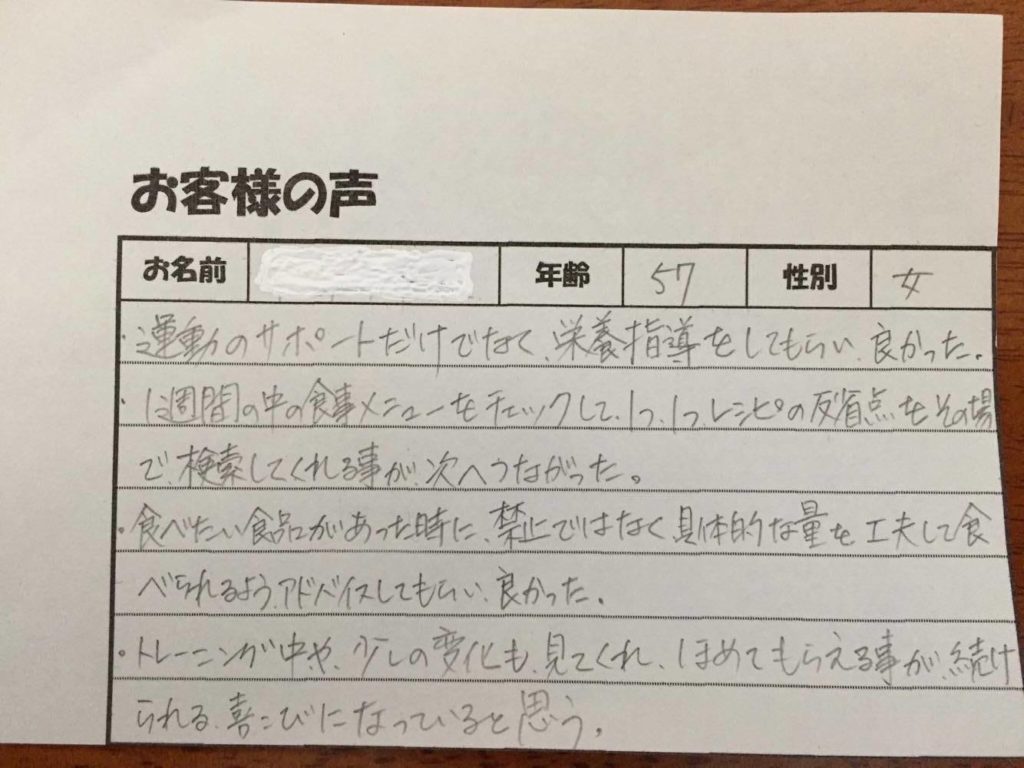 お客様の声
お名前 年齢 57 性別 女
・運動のサポートだけでなく、栄養指導をしてもらい、良かった。
・1週間の中の食事メニューをチェックして、1つ、1つ、レシピの反省点をその場
で、検索してくれる事が、次へつながった。
・食べたい食品があった時に、禁止ではなく具体的な量を工夫して食
べられるよう、アドバイスしてもらい、良かった。
・トレーニング中や、少しの変化も、見てくれ、ほめてもらえる事が、続け
られる、喜こびになっていると思う。